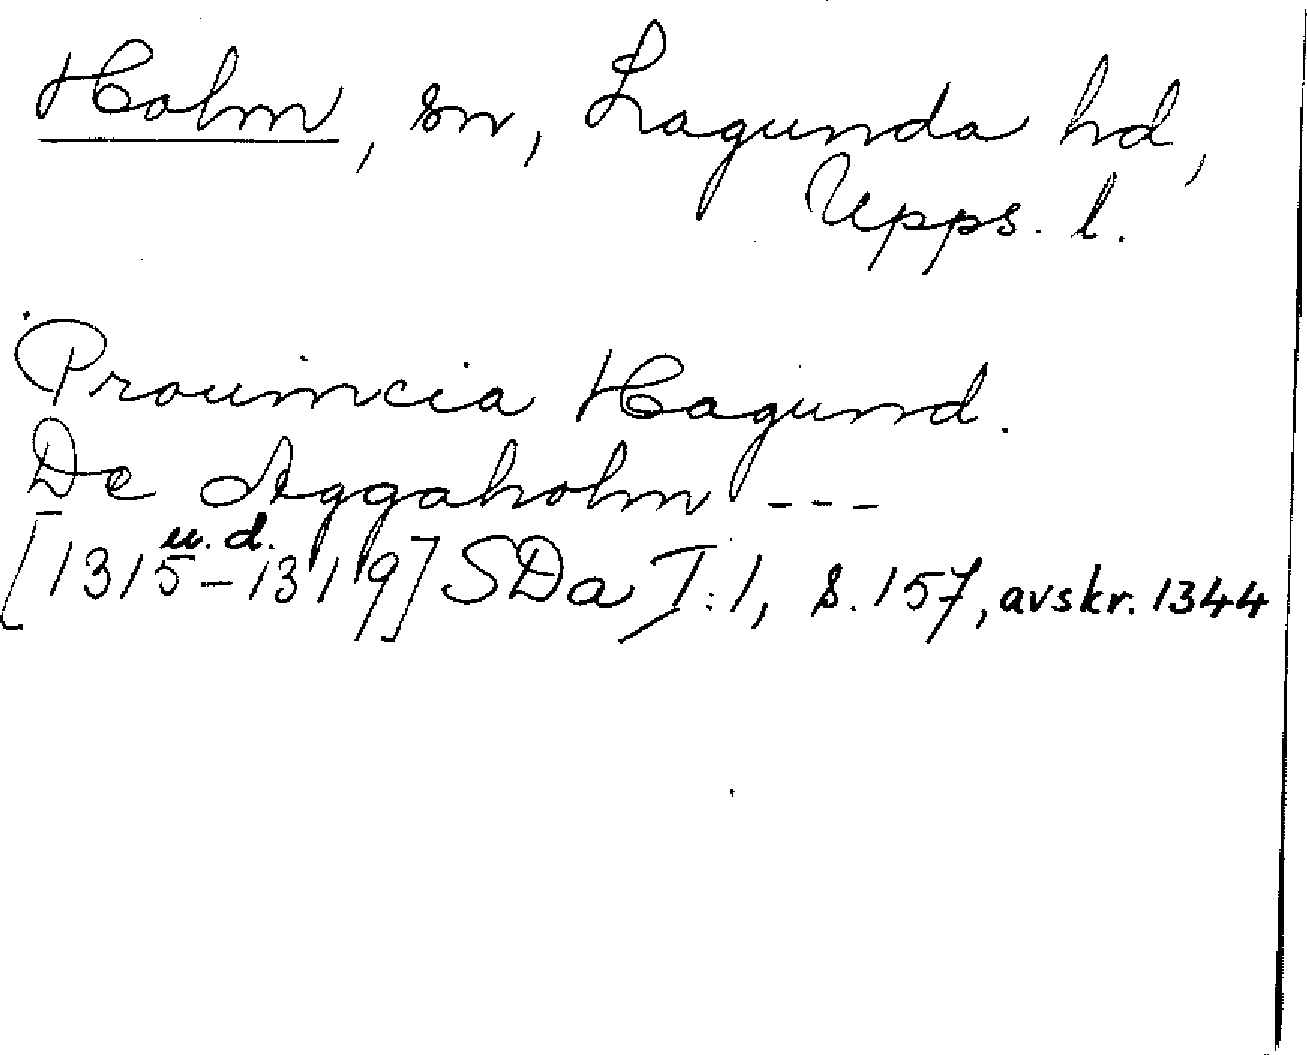 Holm, sn, Lagunda hd,
Upps. l.
Prouincia Hagund.
De Aggaholm ---
u. d.
[1315-1319] SDa I:1, s. 157, avskr. 1344